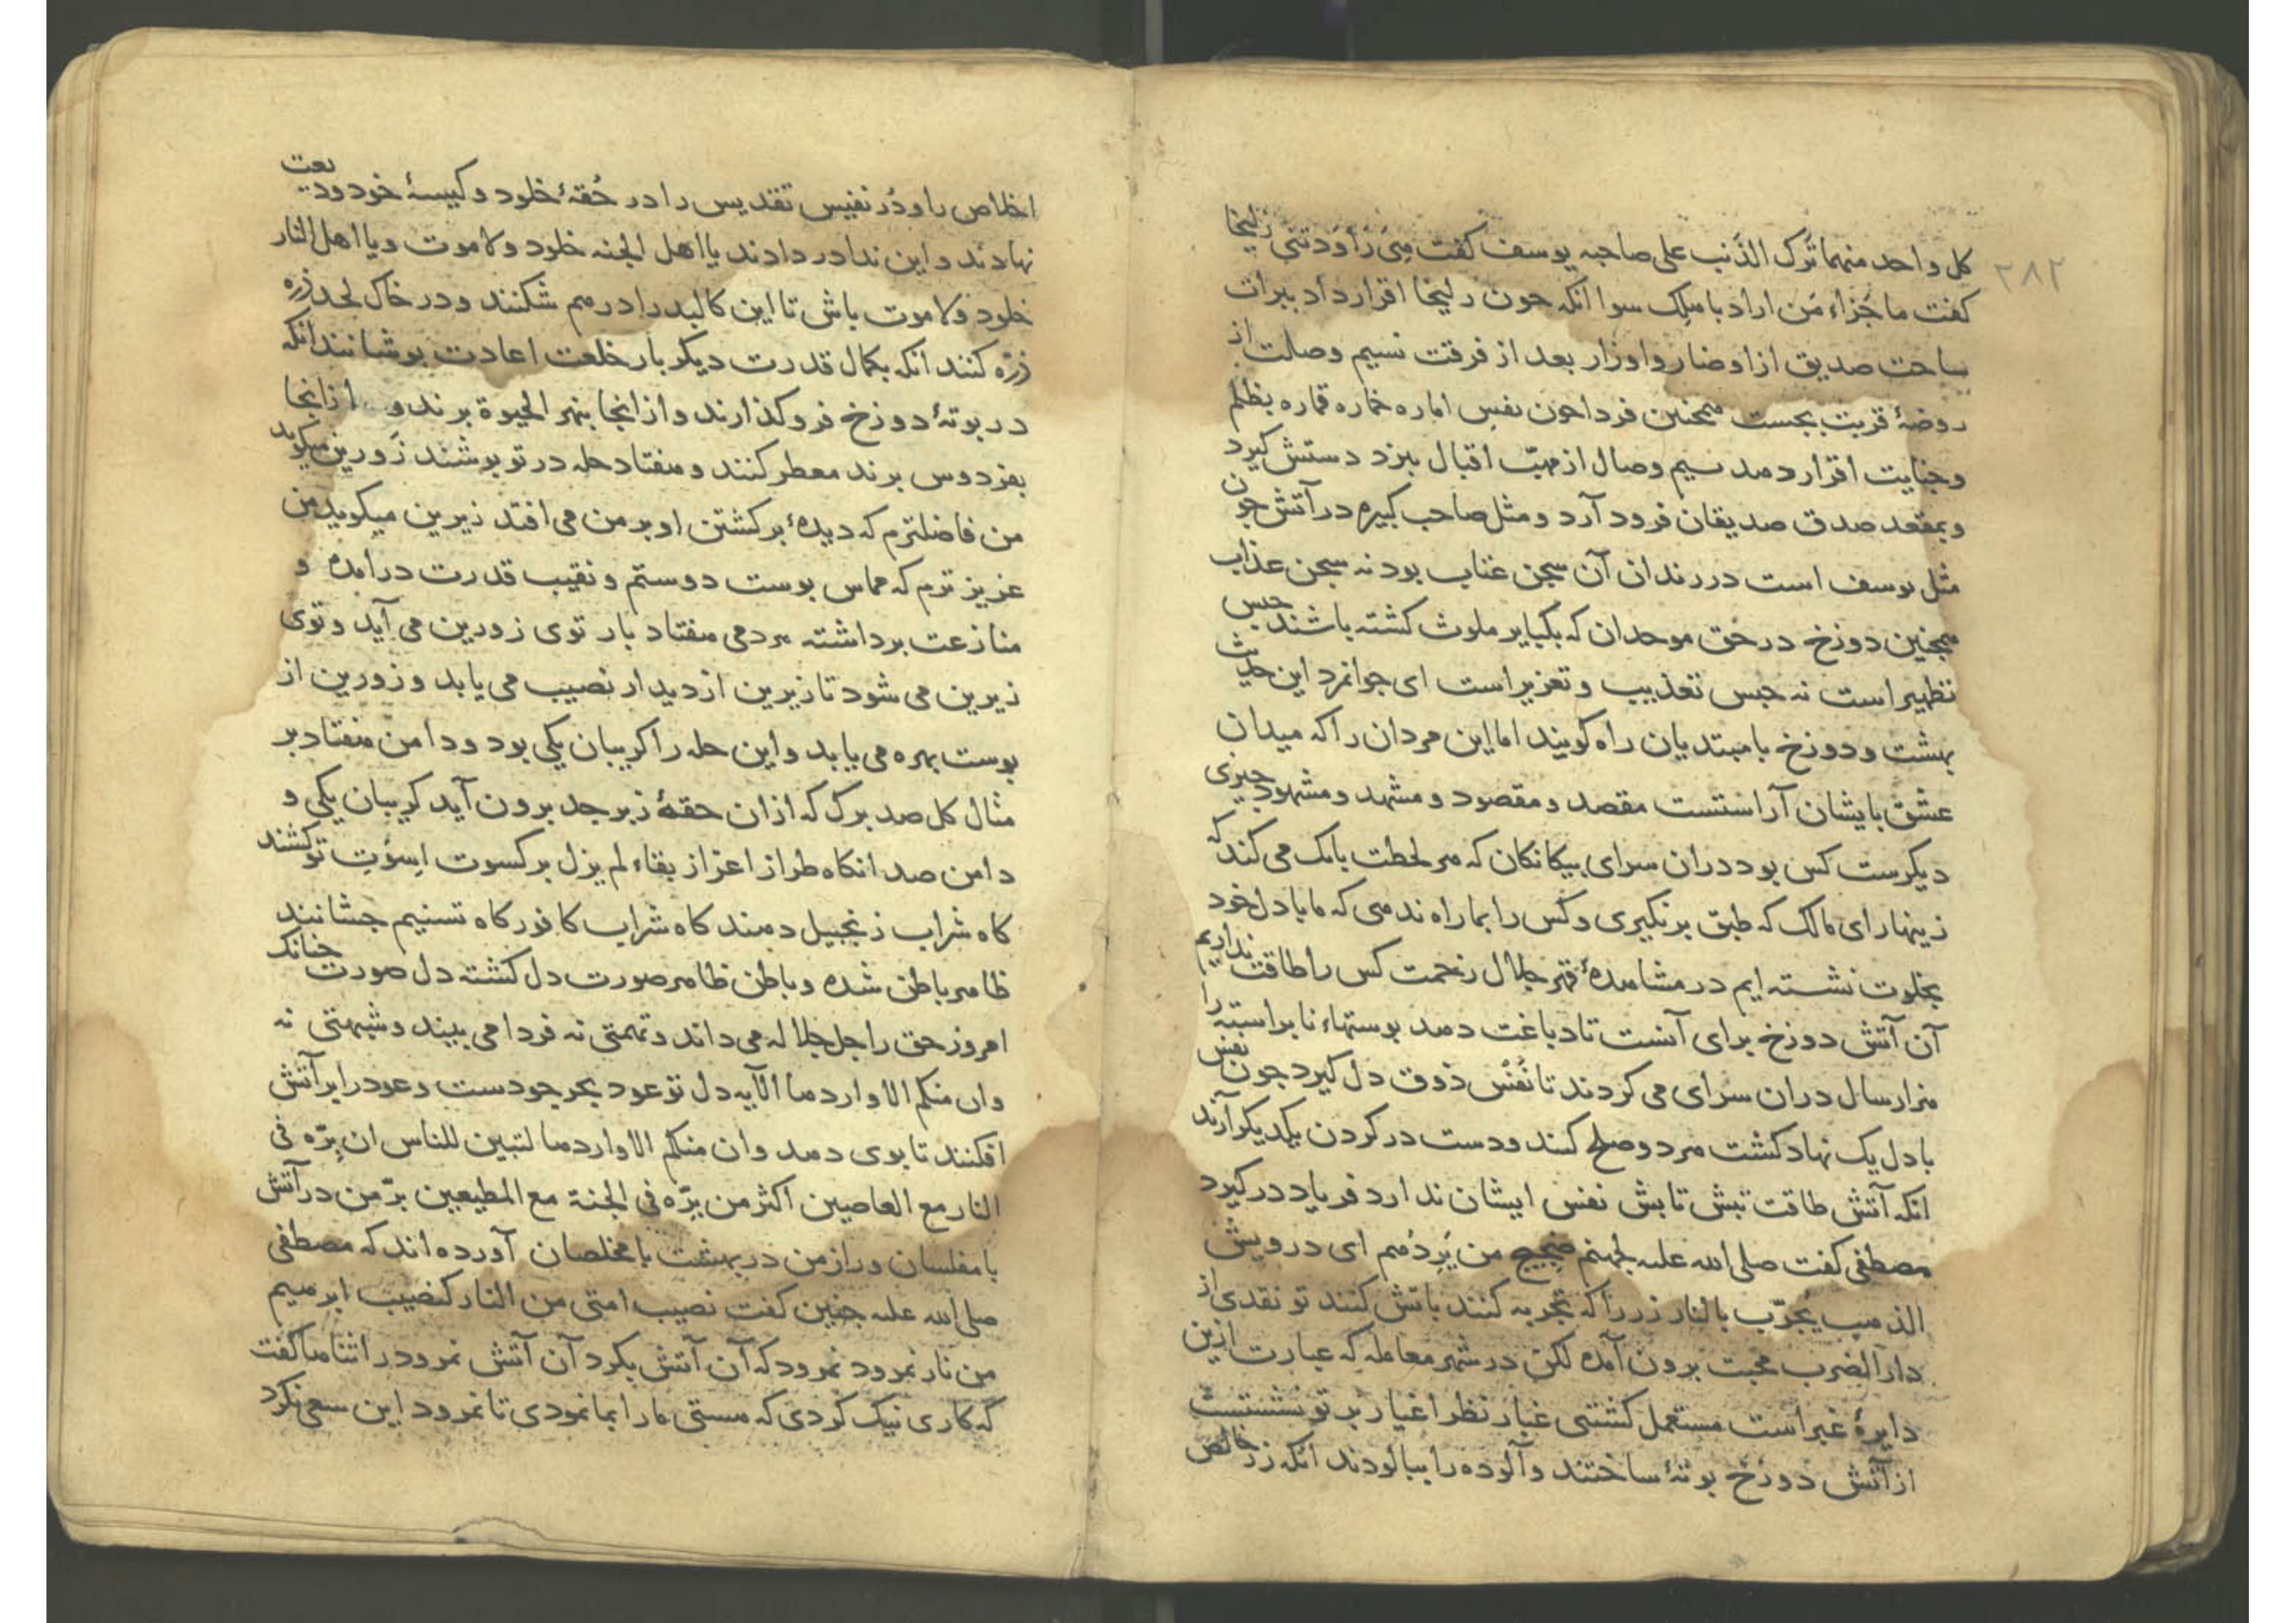 ۲۸۲
کل واحد منهما ترک الذنب علی صاحبه یوسف کفت هی راودتنی زلیخا
کفت ما جزاء من اراد باهلک سوا انکه جون زلیخا اقرار داد ببرات
ساحت صدیق از اوضار و اوزار بعد از فرقت نسیم وصلت از
روضهٔ قربت بجست همجنین فردا جون نفس اماره خماره قماره بظلم
وجنایت اقرار دهد نسیم وصال از مهبّ اقبال بیزد دستش کیرد
وبمقعد صدق صدیقان فرود آرد و مثل صاحب کبیره در آتش جون
مثل یوسف است در زندان آن سجن عتاب بود نه سجن عذاب
همجنین دوزخ در حق موحدان که بکبایر ملوث کشته باشند حبس
تطهیر است نه حبس تعذیب و تعزیر است ای جوانمرد این حدیث
بهشت و دوزخ با مبتدیان راه کویند اما این مردان را که میدان
عشق بایشان آراستست مقصد و مقصود و مشهد و مشهود جیزی
دیکرست کس بود دران سرای بیکانکان که هر لحظت بانک می کند که
زینهار ای مالک که طبق برنکیری و کس را بما راه ندهی که ما با دل خود
بخلوت نشسته ایم در مشاهدهٔ قهر جلال زحمت کس را طاقت نداریم
آن آتش دوزخ برای آنست تا دباغت دهد بوستهاء نابراسته را
هزار سال دران سرای می کردند تا نفس ذوق دل کیرد جون نفس
با دل یک نهاد کشت هر دو صلح کنند و دست در کردن یکدیکر آرند
انکه آتش طاقت تبش تابش نفس ایشان ندارد فریاد در کیرد
مصطفی کفت صلی الله علیه لجهنم ضجیج من بردهم ای درویش
الذهب یجرّب بالنار زر را که تجربه کنند باتش کنند تو نقدی از
دار الضرب محبت برون آمده لکن در شهر معامله که عبارت ازین
دایرهٔ غبراست مستعمل کشتی غبار نظر اغیار بر تو نشستست
از آتش دوزخ بوتهٔ ساختند و آلوده را ببالودند انکه زر خالص
اخلاص را و دُر نفیس تقدیس را در حُقهٔ خلود و کیسهٔ خود ودیعت
نهادند و این ندا در دادند یا اهل الجنه خلود ولا موت ویا اهل النار
خلود ولا موت باش تا این کالبد را در هم شکنند و در خاک لحد ذره
ذرّه کنند انکه بکمال قدرت دیکر بار خلعت اعادت بوشانند انکه
در بوتهٔ دوزخ فرو کذارند و از انجا بنهر الحیوة برند و از انجا
بفردوس برند معطر کنند و هفتاد حله در تو بوشند زورین میکوید
من فاضلترم که دیدهٔ برکشتن او بر من می افتد زیرین میکوید من
عزیزترم که مماس بوست دوستم و نقیب قدرت درآمده و
منازعت برداشته هر دمی هفتاد بار توی زورین می آید و توی
زیرین می شود تا زیرین از دیدار نصیب می یابد و زورین از
بوست بهره می یابد و این حله را کریبان یکی بود و دامن هفتاد بر
مثال کل صد برک که از ان حقهٔ زبرجد برون آید کریبان یکی و
دامن صد انکاه طراز اعزاز بقاء لم یزل بر کسوت اسوت تو کشند
کاه شراب زنجبیل دهند کاه شراب کافور کاه تسنیم جشانند
ظاهر باطن شده و باطن ظاهر صورت دل کشته دل صورت جنانک
امروز حق را جل جلاله می داند و تهمتی نه فردا می بیند و شبهتی نه
وان منکم الا واردها الآیه دل تو عود بحر جودست و عود را بر آتش
افکنند تا بوی دهد وان منکم الا واردها لتبین للناس ان برّه فی
النار مع العاصین اکثر من برّه فی الجنة مع المطیعین برّ من در آتش
با مفلسان و راز من در بهشت با مخلصان آورده اند که مصطفی
صلی الله علیه جنین کفت نصیب امتی من النار کنصیب ابرهیم
من نار نمرود نمرود که آن آتش بکرد آن آتش نمرود را ثناها کفت
که کاری نیک کردی که هستی ما را بما نمودی تا نمرود این سعی نکرد